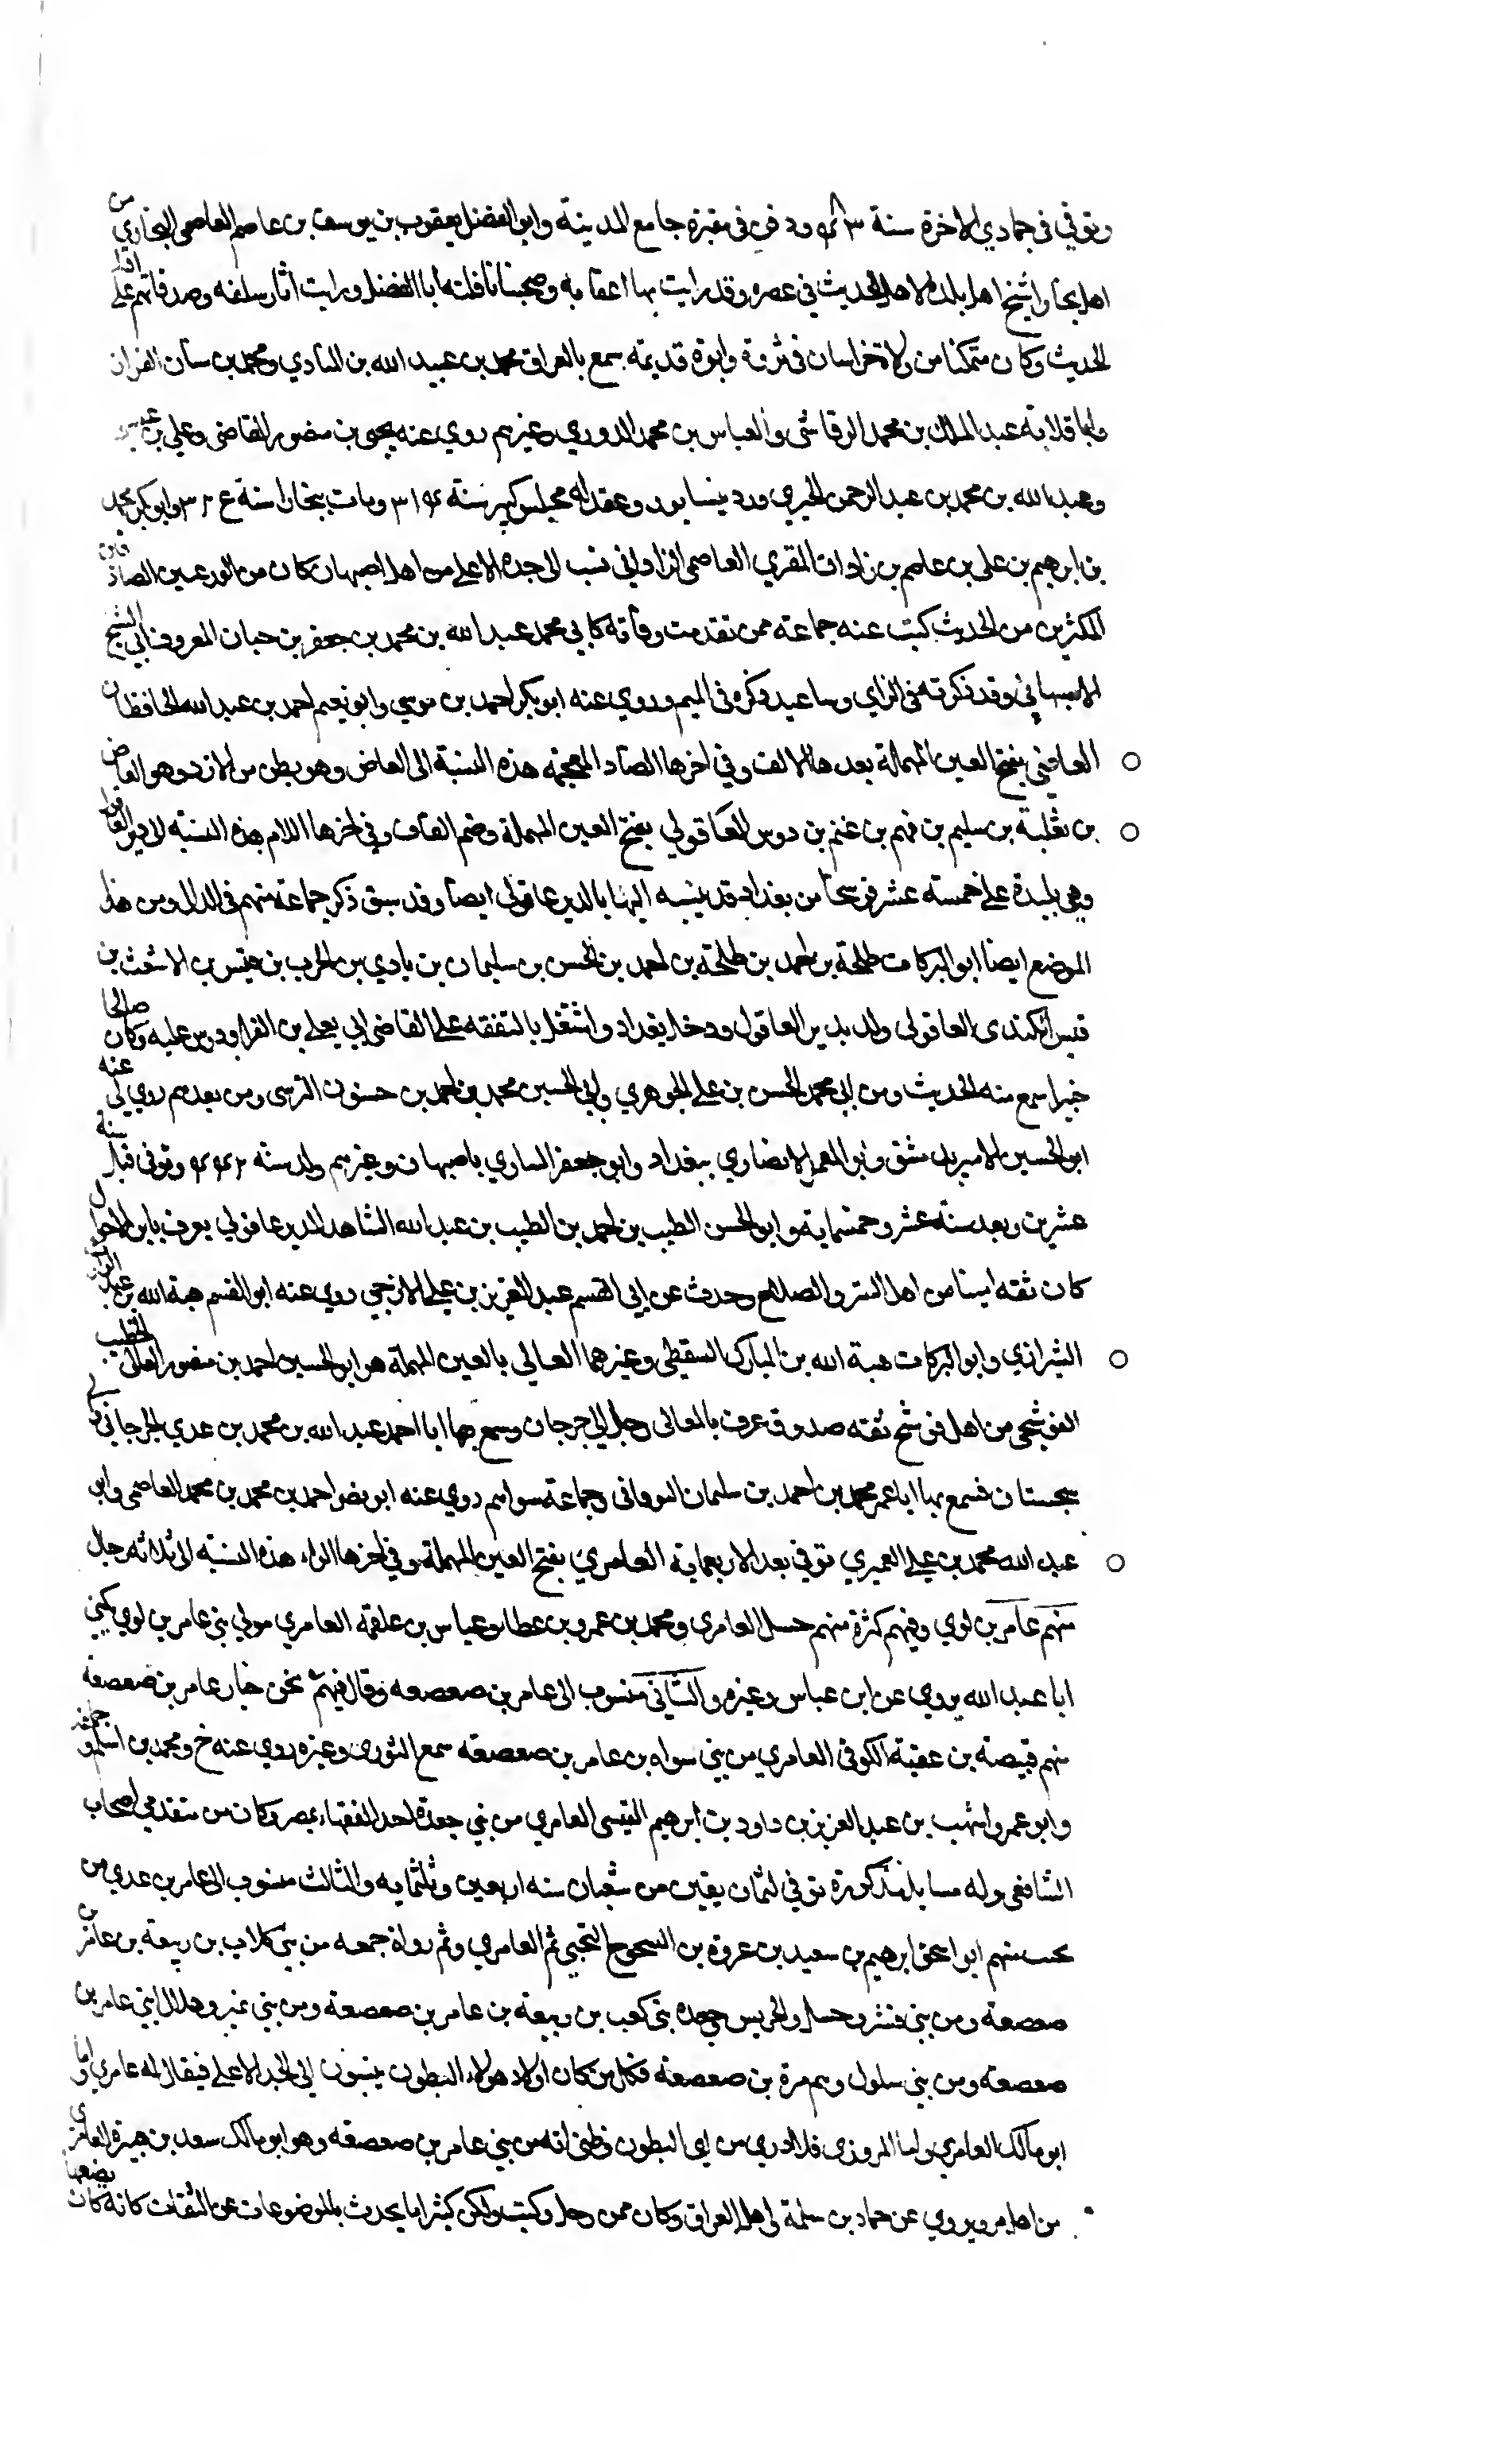 وتوفي في جمادي الاخرة سنة ودفن في مقبرة جامع المدينة وابو الفضل يعقوب بن يوسف بن عاصم العاصمي البخاري من
اهل بخارا شيخ اهل بلده لاهل الحديث في عصره وقد رايت بها اعقابه وصحبنا نافلته ابا الفضل ورايت اثار سلفه وصدقاتهم على
الحديث وكان متمكنا من ولاة خراسان في ثروة وابوة قديمة سمع بالعراق محمد بن عبيد الله بن المنادي ومحمد بن سنان القزاز
وابا قلابة عبد الملك بن محمد الرقاشي والعباس بن محمد الدوري وغيرهم روي عنه يحيى بن منصور القاضي وعلي بن عيسى
وعبد الله بن محمد بن عبد الرحمن الحيري ورد نيسابور وعقد له مجلس كبير سنة ومات ببخارا سنة وابو بكر محمد
بن ابرهيم بن علي بن عاصم بن زاذان المقري العاصمي الزاذاني نسب الى جده الاعلى من اهل اصبهان كان من الورعين الصادقين
المكثرين من الحديث كتب عنه جماعة ممن تقدمت وفاته كابي محمد عبد الله بن محمد بن جعفر بن حبان المعروف بابي الشيخ
الاصبهاني وقد ذكرته في الزاي وساعيد ذكره في الميم وروي عنه ابو بكر احمد بن موسي وابو نعيم احمد بن عبد الله الحافظان
العاضي بفتح العين المهملة بعدها الالف وفي اخرها الضاد المعجمة هذه النسبة الى العاض وهو بطن من الازد وهو العاض
بن ثعلبة بن سليم بن فهم بن غنم بن دوس العاقولي بفتح العين المهملة وضم القاف وفي اخرها اللام هذه النسبة الى دير العاقول
وهي بليدة على خمسة عشر فرسخا من بغداد وقد ينسب اليها بالدير عاقولي ايضا وقد سبق ذكر جماعة منهم في الدال ومن هذا
الموضع ايضا ابو البركات طلحة بن احمد بن طلحة بن احمد بن الحسن بن سليمان بن بادي بن الحرب بن قيس بن الاشعث بن
قيس الكندي العاقولي ولد بدير العاقول ودخل بغداد واشتغل بالتفقه على القاضي ابي يعلى بن الفرا ودرس عليه وكان صالحا
خيرا سمع منه الحديث ومن ابي محمد الحسن بن علي الجوهري وابي الحسين محمد بن احمد بن حسنون النرسي ومن بعدهم روي لي عنه
ابو الحسين الامير بدمشق وابو المعمر الانصاري ببغداد وابو جعفر الساوي باصبهان وغيرهم ولد سنة وتوفي قبل سنة
عشرين وبعد سنة عشر وخمسماية وابو الحسن الطيب بن احمد بن الطيب بن عبد الله الشاهد الدير عاقولي يعرف بابن الاحول
كان ثقة امينا من اهل الستر والصلاح وحدث عن ابي القسم عبد العزيز بن علي الازجي روي عنه ابو القسم هبة الله بن عبد الوارث
الشيرازي وابو البركات هبة الله بن المبارك السقطي وغيرهما العالي بالعين المهملة هو ابو الحسين احمد بن منصور العالي الخطيب
الفوشنجي من اهل فوشنج ثقة صدوق عرف بالعالي رحل الي جرجان وسمع بها ابا احمد عبد الله بن محمد بن عدي الجرجاني
سجستان فسمع بها ابا عمر محمد بن احمد بن سليمان النوقاني وجماعة سواهم روي عنه ابو نصر احمد بن محمد بن محمد العاصمي وابو
عبد الله محمد بن علي العميري توفي بعد الاربعماية العامري بفتح العين المهملة وفي اخرها الراء هذه النسبة الى ثلاثة رجال
منهم عامر بن لوي وفيهم كثرة منهم حسل العامري ومحمد بن عمرو بن عطا وعياس بن علقمة العامري مولي بني عامر بن لوي يكني
ابا عبد الله يروي عن ابن عباس وغيره والثاني منسوب الى عامر بن صعصعه وقال فيهم نحن خيار عامر بن صعصعة
منهم قبيصة بن عقبة الكوفي العامري من بني سواه بن عامر بن صعصعة سمع الثوري وغيره روي عنه خ ومحمد بن اسلم وجماعة
وابو عمرو اشهب بن عبد العزيز بن داود بن ابرهيم القيسي العامري من بني جعدة احد الفقهاء بمصر وكان من متقدمي اصحاب
الشافعي وله مسايل مذكورة توفي لثمان بقين من شعبان سنه اربعين وثلثمايه والثالث منسوب الى عامر بن عدي من
تجيب منهم ابو اسحق ابرهيم بن سعيد بن عروة بن السحوح التجيبي ثم العامري وثم رواة جمعه من بني كلاب بن ربيعة بن عامر بن
صعصعة ومن بني قشير وحسل والحريس وجعده بني كعب بن ربيعة بن عامر بن صعصعة ومن بني نمير وهلال ابني عامر بن
صعصعة ومن بني سلول وهم مرة بن صعصعة فكل من كان اولاد هولاء البطون ينسبون الي الجد الاعلي فيقال له عامري واما
ابو مالك العامري المروزي فلا ادري من اي البطون وظني انه من بني عامر بن صعصعة وهو ابو مالك سعد بن هبيرة العامري
من اهل مرو يروي عن حماد بن سلمة اهل العراق وكان ممن رحل وكتب ولكن كثيرا ما يحدث بالموضوعات عن الثقات كانه كان يضعها